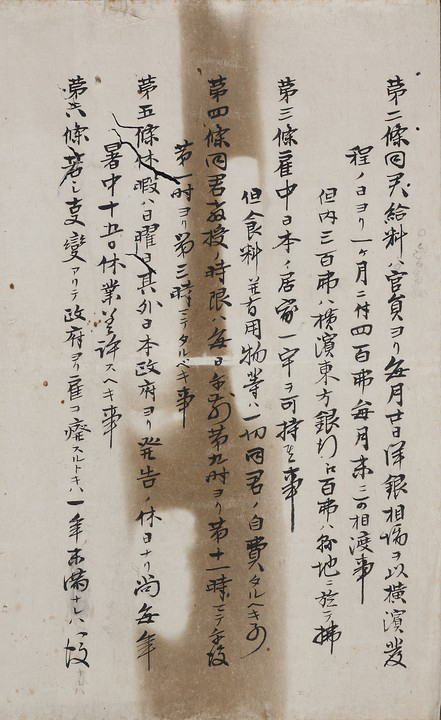 第二條同君給料ハ官員ヨリ毎月廿日洋銀相場ヲ以横濱發
程ノ日ヨリ一ケ月ニ付四百弗毎月末ニ可相渡事
但内三百弗ハ横濱東方銀行ニ百弗ハ任地ニ於テ拂
第三條雇中日本ノ居家一宇ヲ可持セ事
但食料並ニ日用物等ハ一切同君ノ自費タルヘキ事
第四條同君教授ノ時限ハ毎日午前第九時ヨリ第十一時マテ午後
第一時ヨリ第三時マテタルベキ事
第五條休暇ハ日曜日其外日本政府ヨリ発告ノ休日ナリ尚毎年
暑中十五日休業差許スヘキ事
第六條若シ支變アリテ政府ヨリ雇ヲ廃スルトキハ一年未満ナレハ